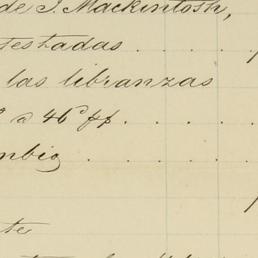 de J. Mackintosh,
testadas . . .
las libranzas
a 46 c ff . . . .
mbio . . . .
te